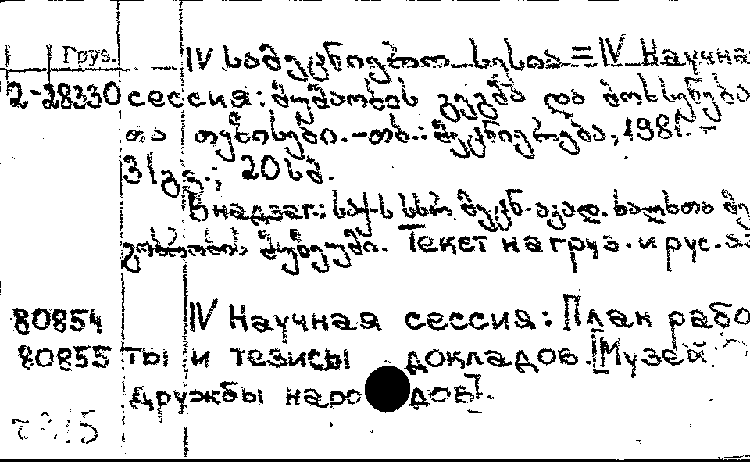 Груз. IV სამეცნიერო სესია = IV Научна
2-28330 сессия: მუშაობის გეგმა და მოხსენება
თა თეზისები. - თბ.: მეცნიერება, 1981. -
31 გვ.; 20 სმ.
В надзаг.: საქ. სსრ მეცნ. აკად. ხალხთა მე
გობრობის მუზეუმი. Текст на груз. и рус. яз
80854 IV Научная сессия: План рабо
80855 ты и тезисы докладов. [Музей
дружбы народов].